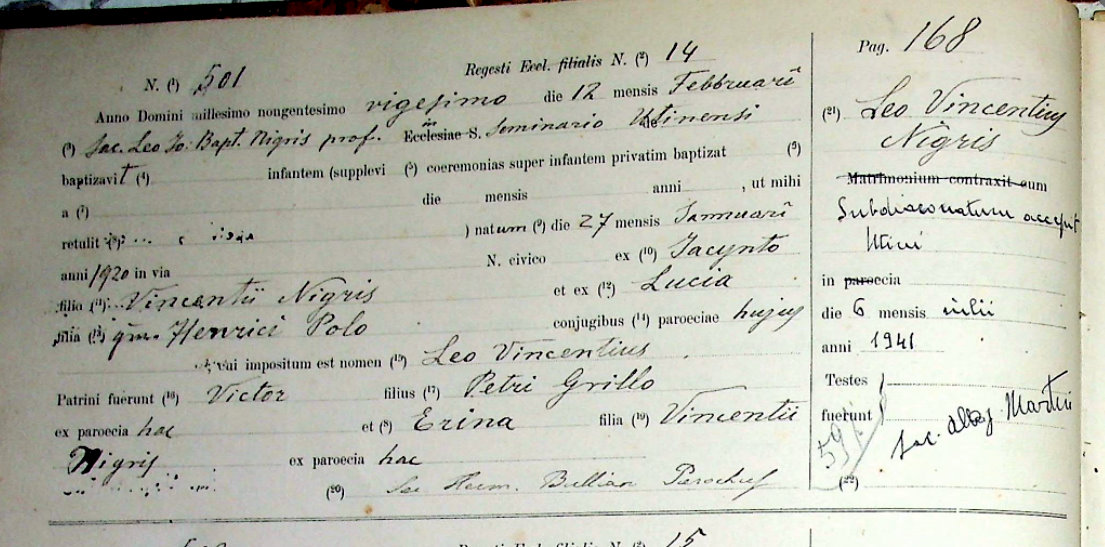 N. (¹) 501
Regesti Eccl. filialis N. (²) 14
Anno Domini millesimo nongentesimo vigesimo die 12 mensis Februarii
(³) Sac. Leo Jo: Bapt. Nigris prof. in Ecclesiae S. Seminario Utinensi
baptizavit (⁴) infantem (supplevi (⁵) coeremonias super infantem privatim baptizat (⁶)
a (⁷) die mensis anni , ut mihi
retulit ) natum (⁹) die 27 mensis Januarii
anni 1920 in via N. civico ex (¹⁰) Jacynto
filio (¹¹) Vincentii Nigris et ex (¹²) Lucia
filia (¹³) qm. Henrici Polo conjugibus (¹⁴) paroeciae hujus
cui impositum est nomen (¹⁵) Leo Vincentius
Patrini fuerunt (¹⁶) Victor filius (¹⁷) Petri Grillo
ex paroecia hac et (⁸) Erina filia (¹⁹) Vincentii
Nigris ex paroecia hac
(²⁰) Sac Herm. Bullian Parochus
Pag. 168
(²¹) Leo Vincentius
Nigris
Matrimonium contraxit cum
Subdiaconatum accepit
Utini
in paroecia
die 6 mensis iulii
anni 1941
Testes
fuerunt
Sac. Aloys. Martin
59
(²²)
Regesti Eccl. filialis N. (²) 15